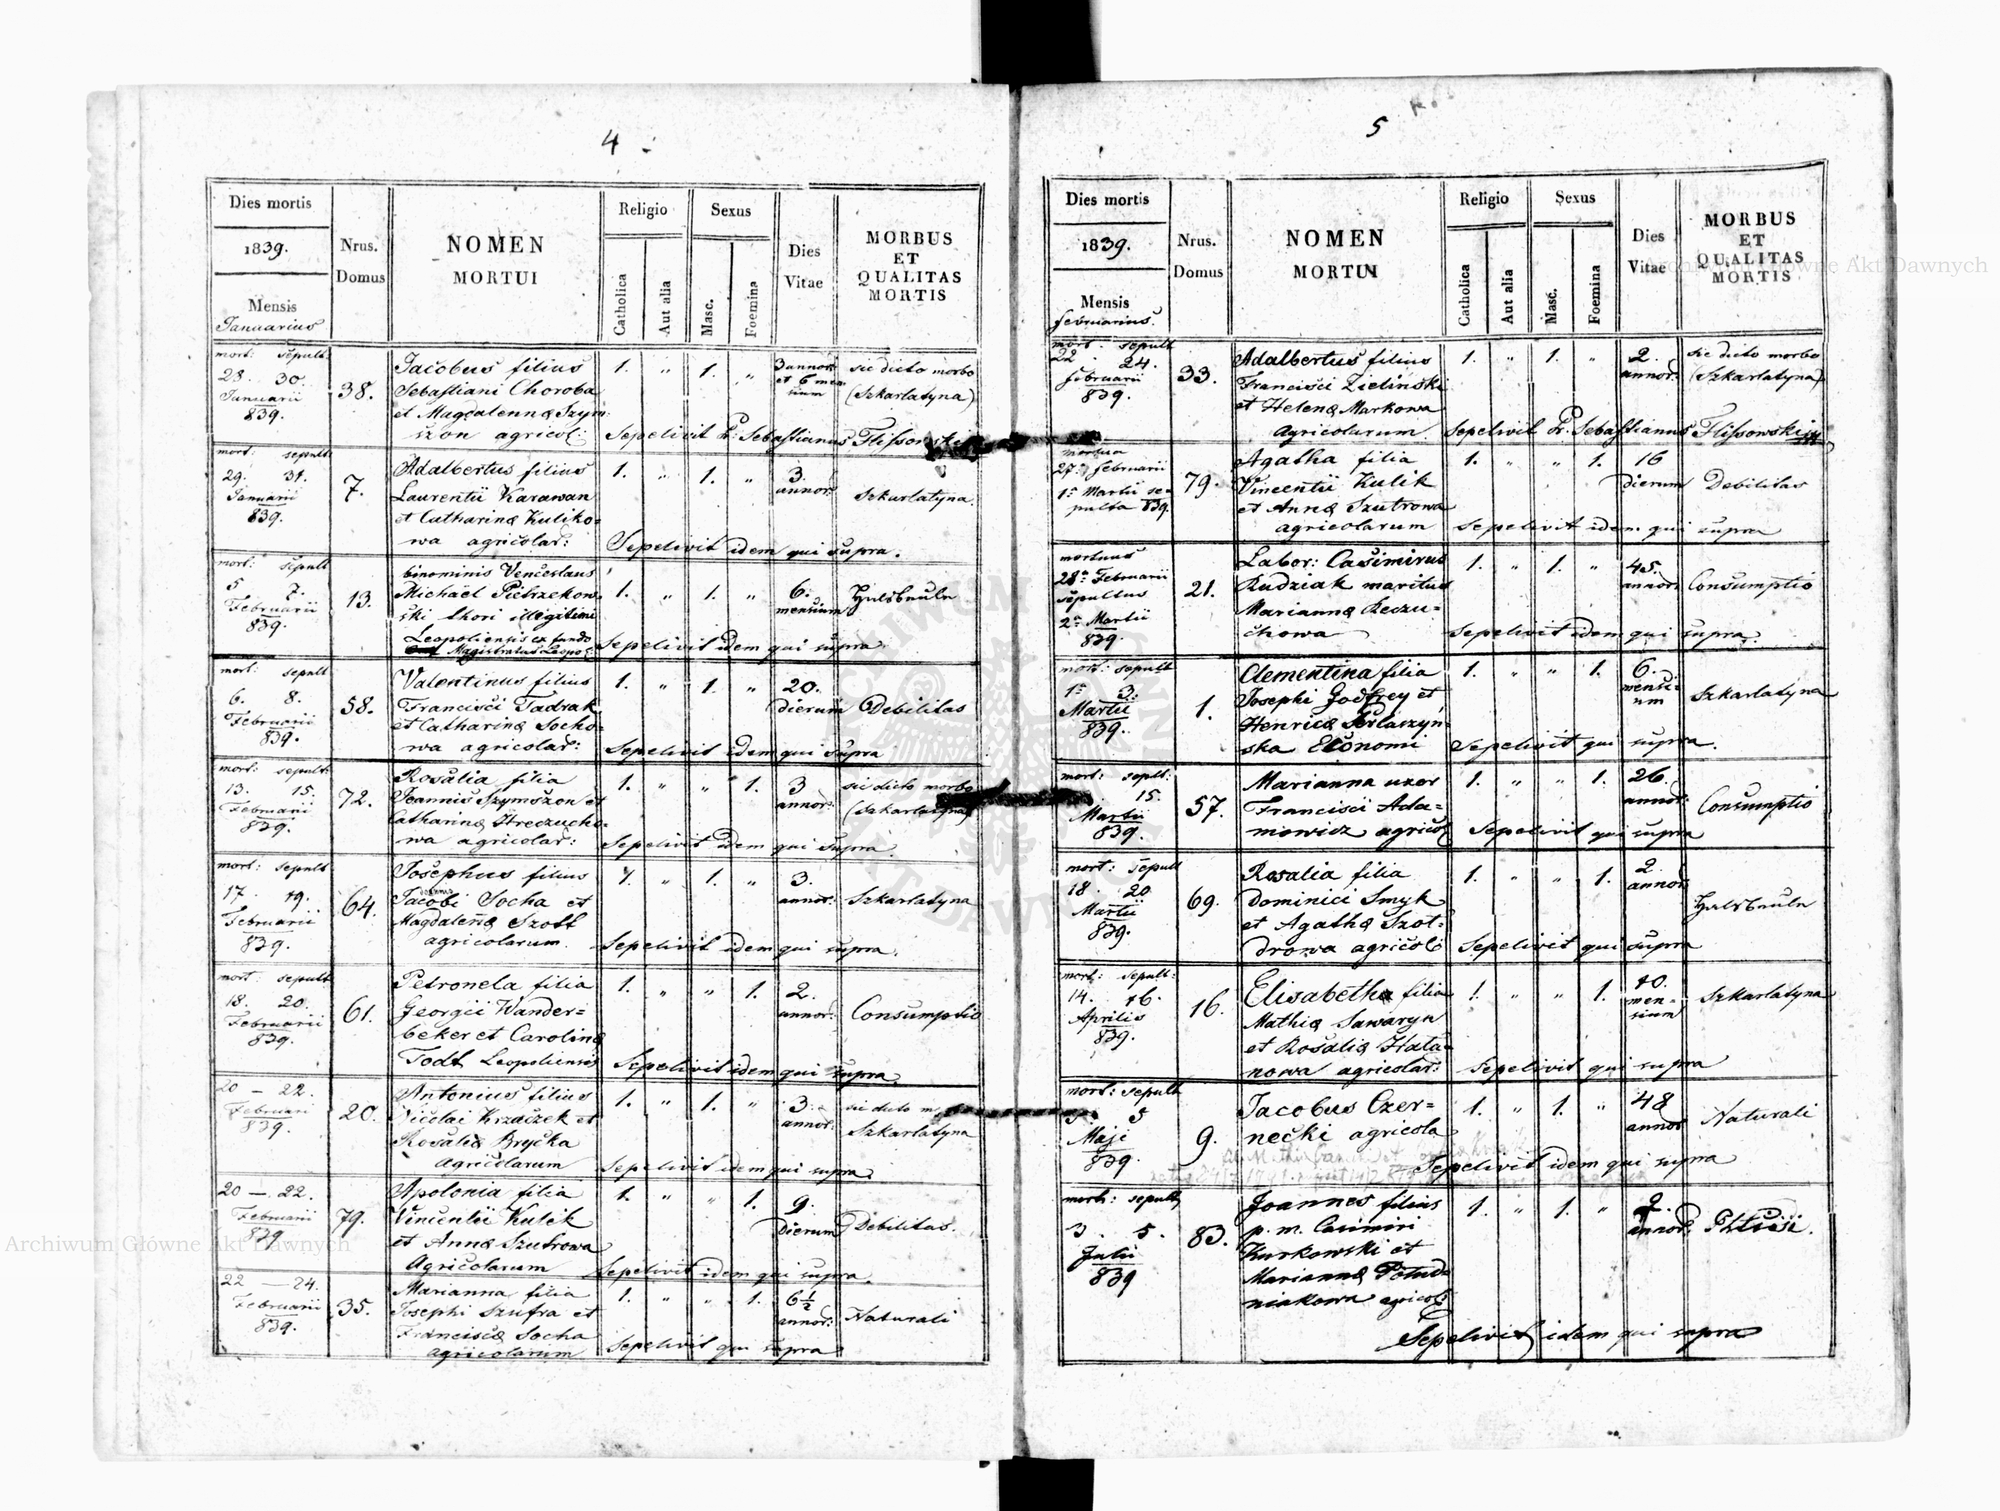 4
Dies mortis
1839.
Mensis
Januarius
Nrus.
Domus
NOMEN
MORTUI
Religio
Catholica
Aut alia
Sexus
Masc.
Foemina
Dies
Vitae
MORBUS
ET
QUALITAS
MORTIS
mort: sepult:
28. 30.
Januarii
839.
38.
Jacobus filius
Sebastiani Choroba
et Magdalenæ Szym=
szon agricol:
1. " 1. "
3 annor:
et 6 men
sium
sic dicto morbo
(Szkarlatyna)
Sepelivit Pr: Sebastianus Flissowski
mort: sepult:
29. 31.
Januarii
839.
7.
Adalbertus filius
Laurentii Karawan
et Catharinæ Kuliko=
wa agricolar:
1. " 1. "
3.
annor:
Szkarlatyna
Sepelivit idem qui supra.
mort: sepult
5 7.
Februarii
839.
13.
binominis Venceslaus
Michael Pietrzekow
ski thori illegitimi
Leopoliensis ex fundo
Magistratus Leopol:
1. " 1. "
6.
mensium
Sepelivit idem qui supra.
mort: sepult
6. 8.
Februarii
839.
58.
Valentinus filius
Francisci Tadrak
et Catharinæ Socho=
wa agricolar:
1. " 1. "
20.
dierum
Debilitas
Sepelivit idem qui supra
mort: sepult:
13. 15.
Februarii
839.
72.
Rosalia filia
Joannis Szymszon et
Catharinæ Hreczucho=
wa agricolar:
1. " " 1.
3
annor:
sic dicto morbo
(Szkarlatyna)
Sepelivit idem qui supra.
mort: sepult
17. 19.
Februarii
839.
64.
Josephus filius
Jacobi Socha et
Magdalenæ Szott
agricolarum.
1. " 1. "
3.
annor:
Szkarlatyna
Sepelivit idem qui supra.
mort: sepult
18. 20.
Februarii
839.
61.
Petronela filia
Georgii Wander=
beker et Carolinæ
Todt Leopoliensis
1. " " 1.
2.
annor:
Consumptio
Sepelivit idem qui supra.
20 — 22.
Februarii
839.
20.
Antonius filius
Nicolai Krzaczek et
Rosaliæ Bryćka
Agricolarum
1. " 1. "
3.
annor:
sic dicto
Szkarlatyna
Sepelivit idem qui supra.
20 — 22.
Februarii
839
79.
Apolonia filia
Vincentii Kulik
et Annæ Szutrowa
Agricolarum
1. " " 1.
9.
dierum
Debilitas.
Sepelivit idem qui supra.
22 — 24.
Februarii
839.
35.
Marianna filia
Josephi Szufra et
Franciscæ Socha
agricolarum
1. " " 1.
6 1/2
annor:
Naturali
Sepelivit qui supra
5
Dies mortis
1839.
Mensis
februarius.
Nrus.
Domus
NOMEN
MORTUI
Religio
Catholica
Aut alia
Sexus
Masc.
Foemina
Dies
Vitae
MORBUS
ET
QUALITAS
MORTIS
mort: sepult
22. 24.
februarii
839.
33.
Adalbertus filius
Francisci Zielinski
et Helenæ Markowa
Agricolarum.
1. " 1. "
2.
annor:
sic dicto morbo
(Szkarlatyna)
Sepelivit Pr: Sebastianus Flissowski
mortua
27ª februarii
1ª Martii se=
pulta 839.
79.
Agatha filia
Vincentii Kulik
et Annæ Szutrowa
agricolarum
1. " " 1.
16
dierum
Debilitas
Sepelivit idem qui supra
mortuus
28ª Februarii
sepultus
2ª Martii
839.
21.
Labor: Casimirus
Rudziak maritus
Mariannæ Reczu=
chowa
1. " 1. "
45.
annor:
Consumptio
Sepelivit idem qui supra.
mort: sepult
1ª 3:
Martii
839.
1.
Clementina filia
Josephi Godfrey et
ska Economi
1. " " 1.
6.
mensi=
um
Szkarlatyna
Sepelivit qui supra.
mort: sepult:
15.
Martii
839.
57.
Marianna uxor
Francisci Ada=
mowicz agricol
1. " " 1.
26.
annor:
Consumptio
Sepelivit qui supra
mort: sepult
18. 20.
Martii
839.
69.
Rosalia filia
Dominici Smyk
et Agathæ Szol=
drowa agricol:
1. " " 1.
2.
annor:
Sepelivit qui supra
mort: sepult:
14. 16.
Aprilis
839.
16.
Elisabetha filia
Mathiæ Sawaryn
et Rosaliæ Hata=
nowa agricolar:
1. " " 1.
10.
men=
sium
Szkarlatyna
Sepelivit qui supra
mort: sepult
3. 5
Maji
839.
9.
Jacobus Czer=
necki agricola
1. " 1. "
48
annor
Naturali
Sepelivit idem qui supra
mort: sepult
3. 5.
Julii
839
83.
Joannes filius
p. m. Casimiri
Kurkowski et
Mariannæ Połud=
niakowa agricol:
1. " 1. "
2.
annor:
Phtisi.
Sepelivit idem qui supra
Archiwum Główne Akt Dawnych
Archiwum Główne Akt Dawnych
ARCHIWUM GŁÓWNE AKT DAWNYCH